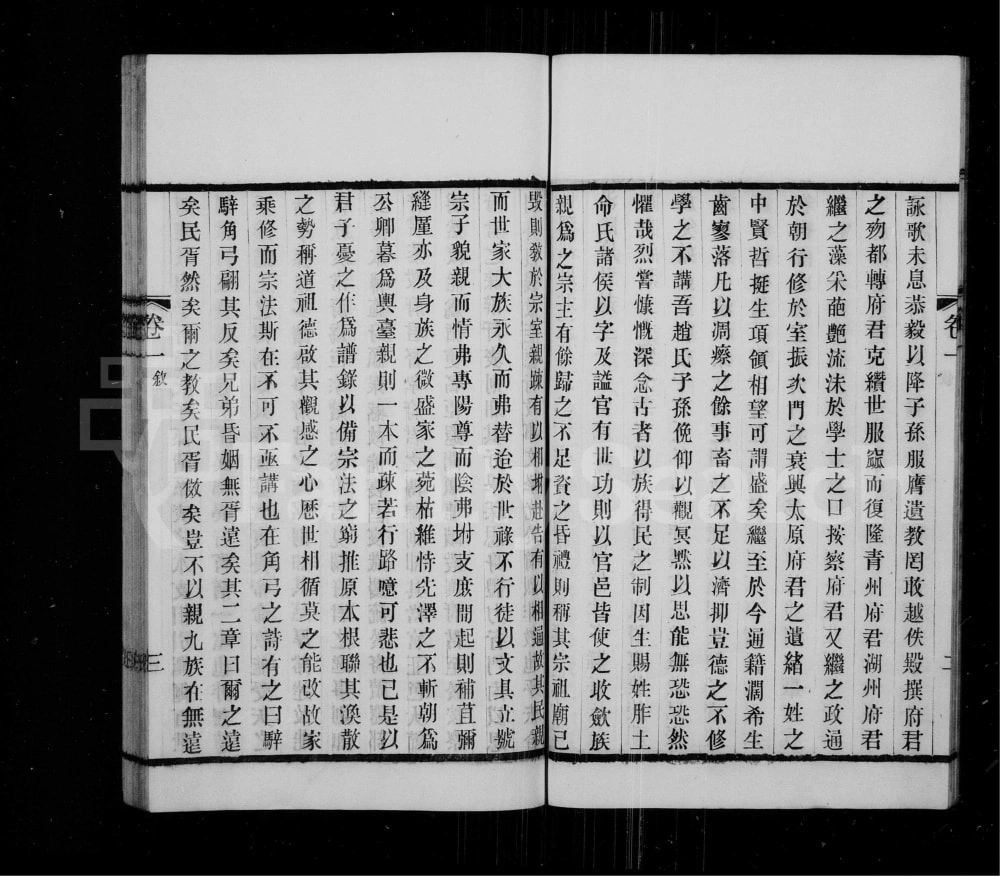 詠歌未息恭毅以降子孫服膺遺教罔敢越佚毀撰府君
之歿都轉府君克纘世服竈而復隆青州府君湖州府君
繼之藻采葩艷流沫於學士之口按察府君又繼之政通
於朝行修於室振次門之衰興太原府君之遺緒一姓之
中賢哲挺生項領相望可謂盛矣繼至於今通籍濶希生
齒寥落凡以凋瘵之餘事畜之不足以濟抑豈德之不修
學之不講吾趙氏子孫俛仰以觀冥默以思能無恐恐然
懼哉烈嘗慷慨深念古者以族得民之制因生賜姓胙土
命氏諸侯以字及謚官有世功則以官邑皆使之收歛族
親爲之宗主有餘歸之不足資之昏禮則稱其宗祖廟已
毀則敎於宗室親疎有以相坿赴告有以相通故其民親
而世家大族永久而弗替迨於世祿不行徒以文具立號
宗子貌親而情弗專陽尊而陰弗坿支庶間起則補苴彌
縫厪亦及身族之微盛家之菀枯維恃先澤之不斬朝爲
公卿暮爲輿臺親則一本而疎若行路噫可悲也已是以
君子憂之作爲譜錄以備宗法之窮推原本根聯其渙散
之勢稱道祖德啟其觀感之心厯世相循莫之能改故家
乘修而宗法斯在不可不亟講也在角弓之詩有之曰騂
騂角弓翩其反矣兄弟昏姻無胥遠矣其二章曰爾之遠
矣民胥然矣爾之教矣民胥傚矣豈不以親九族在無遠
卷一
二
卷一
敘
三